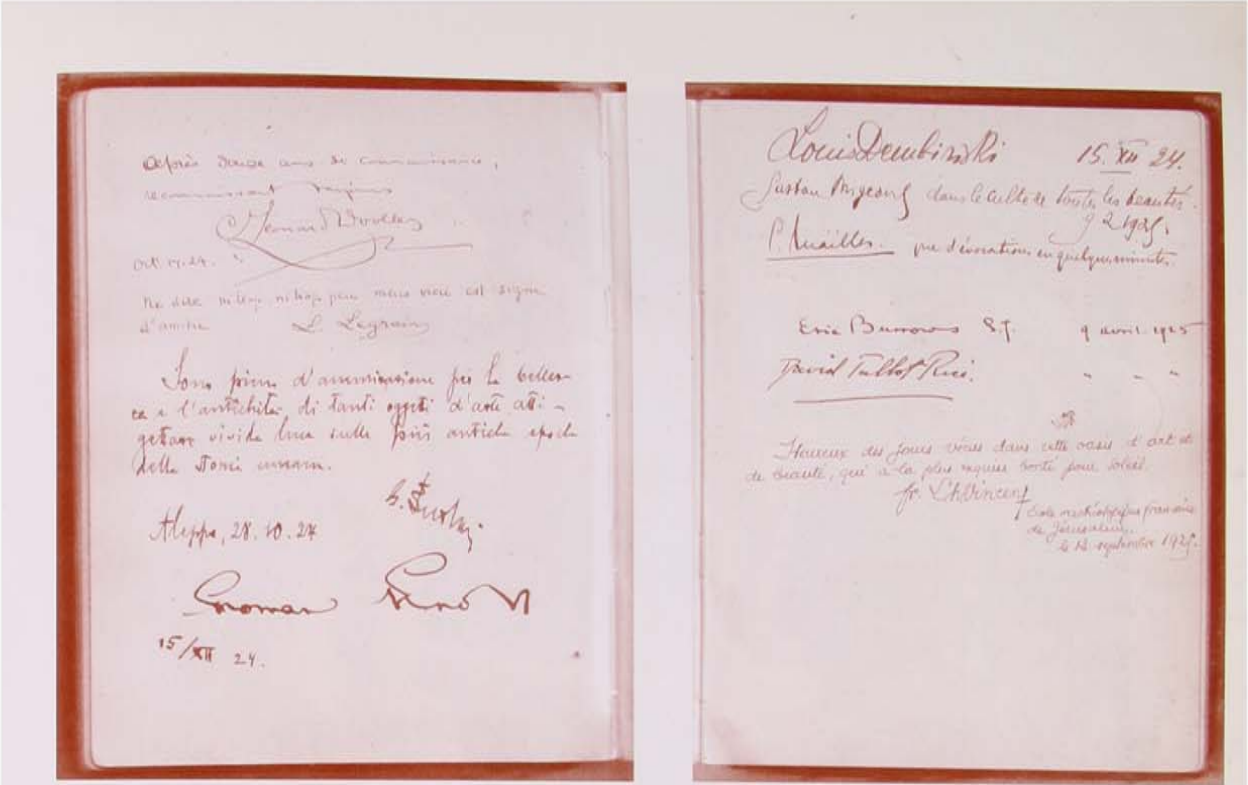 Après douze ans de connaissance,
reconnaissant toujours
Leonard Woolley
Oct. 24.
Ne dire ni trop ni trop peu mais vivre est signe
d'amitié L. Legrain
Sono pieno d'ammirazione per la bellez-
za e l'antichità di tanti oggetti d'arte atti a
gettare vivida luce sulle più antiche epoche
della storia umana.
Aleppo, 28.10.24
15/XII 24.
Louis Dembinski 15. XII 24.
Gaston Migeon dans le culte de toutes les beautés.
9 2 1925.
que d'évocations en quelques minutes.
Eric Burrows S.J. 9 avril 1925
David Talbot Rice. " " "
Heureux des jours vécus dans cette oasis d'art et
de beauté, qui a la plus exquise bonté pour soleil.
fr. L. H. Vincent
Ecole archéologique française
de Jérusalem.
septembre 1925.